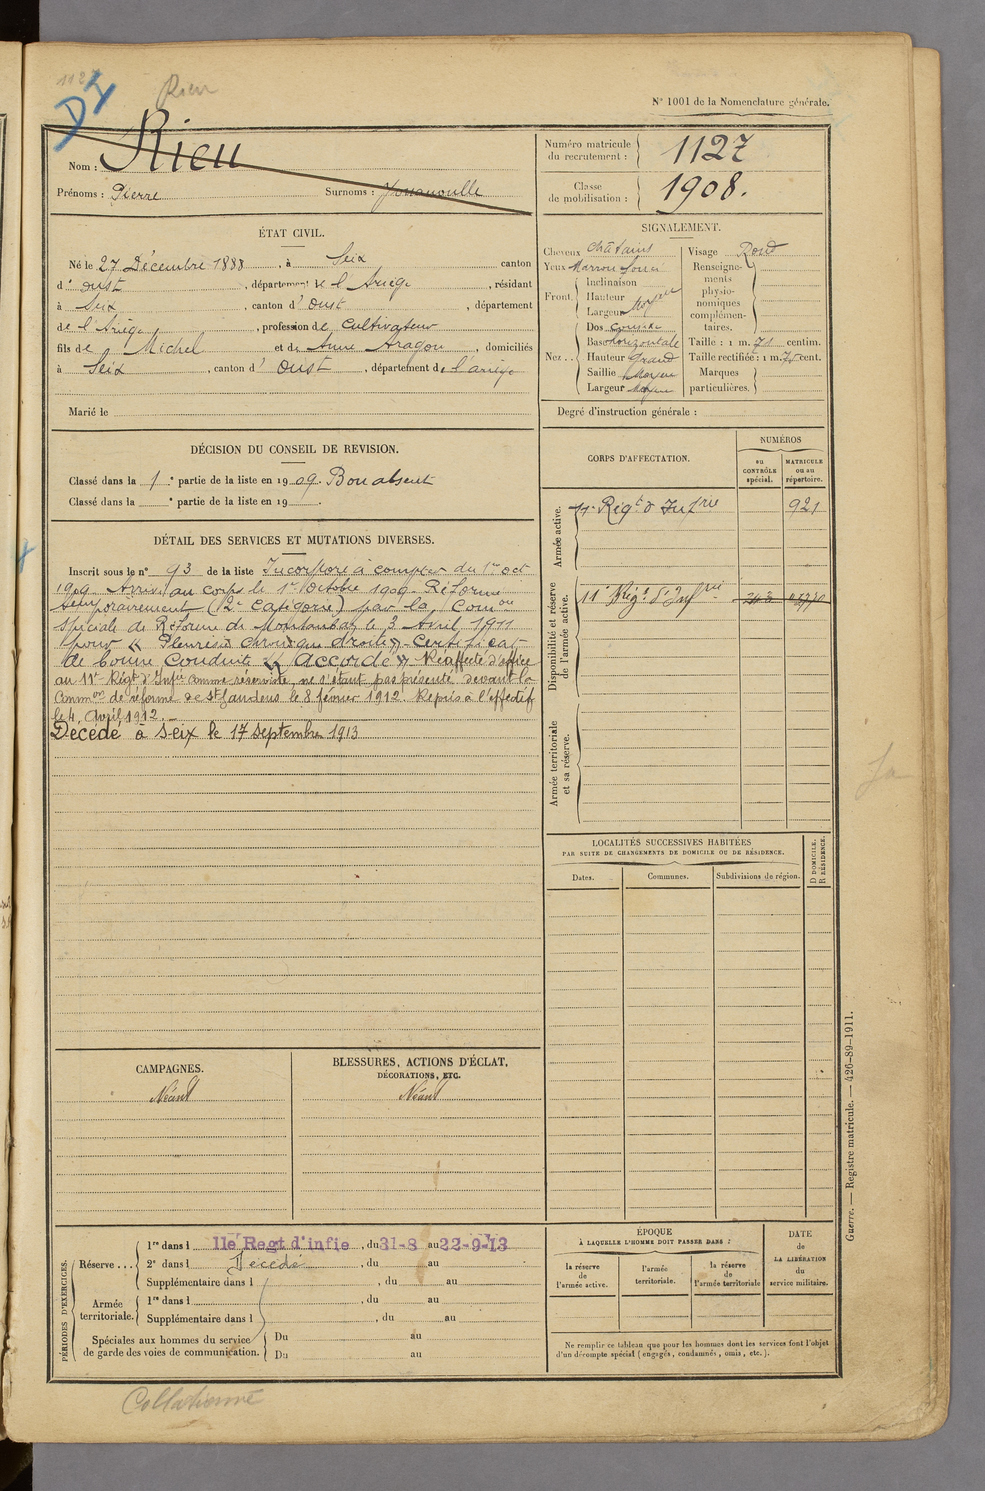 1127
DI
Rieu
N° 1001 de la Nomenclature générale.
Nom : Rieu
Prénoms : Pierre
Surnoms :
Numéro matricule du recrutement : 1127
Classe de mobilisation : 1908.
ÉTAT CIVIL.
Né le 27 Décembre 1888, à Seix canton
d'Oust, département de l'Ariège, résidant
à Seix, canton d'Oust, département
de l'Ariège, profession de Cultivateur
fils de Michel et de Anne Aragou, domiciliés
à Seix, canton d'Oust, département de l'ariège
Marié le
SIGNALEMENT.
Cheveux Châtains
Yeux Marron foncé
Front.
Inclinaison
Hauteur
Largeur Moyenne
Nez..
Dos
Base horizontale
Hauteur Grand
Saillie Moyen
Largeur Moyen
Visage Rond
Renseignements physionomiques complémentaires.
Taille : 1 m. 71 centim.
Taille rectifiée : 1 m. cent.
Marques particulières.
Degré d'instruction générale :
DÉCISION DU CONSEIL DE REVISION.
Classé dans la 1e partie de la liste en 1909. Bon absent
Classé dans la e partie de la liste en 19
DÉTAIL DES SERVICES ET MUTATIONS DIVERSES.
Inscrit sous le n° 93 de la liste Incorporé à compter du 1er oct
1909. Arrivé au corps le 1er Octobre 1909. Réformé
temporairement (2e Catégorie) par la Comon
spéciale de Réforme de Montauban le 3 Avril 1911
pour « Pleurésie chronique droite » Certificat
de bonne Conduite « Accordé » Réaffecté d'office
au 11e Régt d'Infie comme réserviste, ne s'étant pas présenté devant la
Common de réforme de St Gaudens le 8 février 1912. Repris à l'effectif
le 4 Avril 1912.
Décédé à Seix le 17 septembre 1913
CORPS D'AFFECTATION.
NUMÉROS
au CONTRÔLE spécial.
MATRICULE ou au répertoire.
Armée active.
11e Régt d'Infrie 921
Disponibilité et réserve de l'armée active.
11e Régt d'Infrie
Armée territoriale et sa réserve.
LOCALITÉS SUCCESSIVES HABITÉES
PAR SUITE DE CHANGEMENTS DE DOMICILE OU DE RÉSIDENCE.
Dates.
Communes.
Subdivisions de région.
D DOMICILE. R RÉSIDENCE.
CAMPAGNES.
Néant
BLESSURES, ACTIONS D'ÉCLAT,
DÉCORATIONS, ETC.
Néant
PÉRIODES D'EXERCICES.
Réserve...
1re dans l 11e Regt d'infie, du 31-8 au 22-9-13
2e dans l Décédé, du au
Supplémentaire dans l , du au
Armée territoriale.
1re dans l , du au
Supplémentaire dans l , du au
Spéciales aux hommes du service
de garde des voies de communication.
Du au
Du au
ÉPOQUE
À LAQUELLE L'HOMME DOIT PASSER DANS :
la réserve de l'armée active.
l'armée territoriale.
la réserve de l'armée territoriale
DATE de LA LIBÉRATION du service militaire.
Ne remplir ce tableau que pour les hommes dont les services font l'objet
d'un décompte spécial (engagés, condamnés, omis, etc.).
Guerre. — Registre matricule. — 426-89-1911.
Collationné